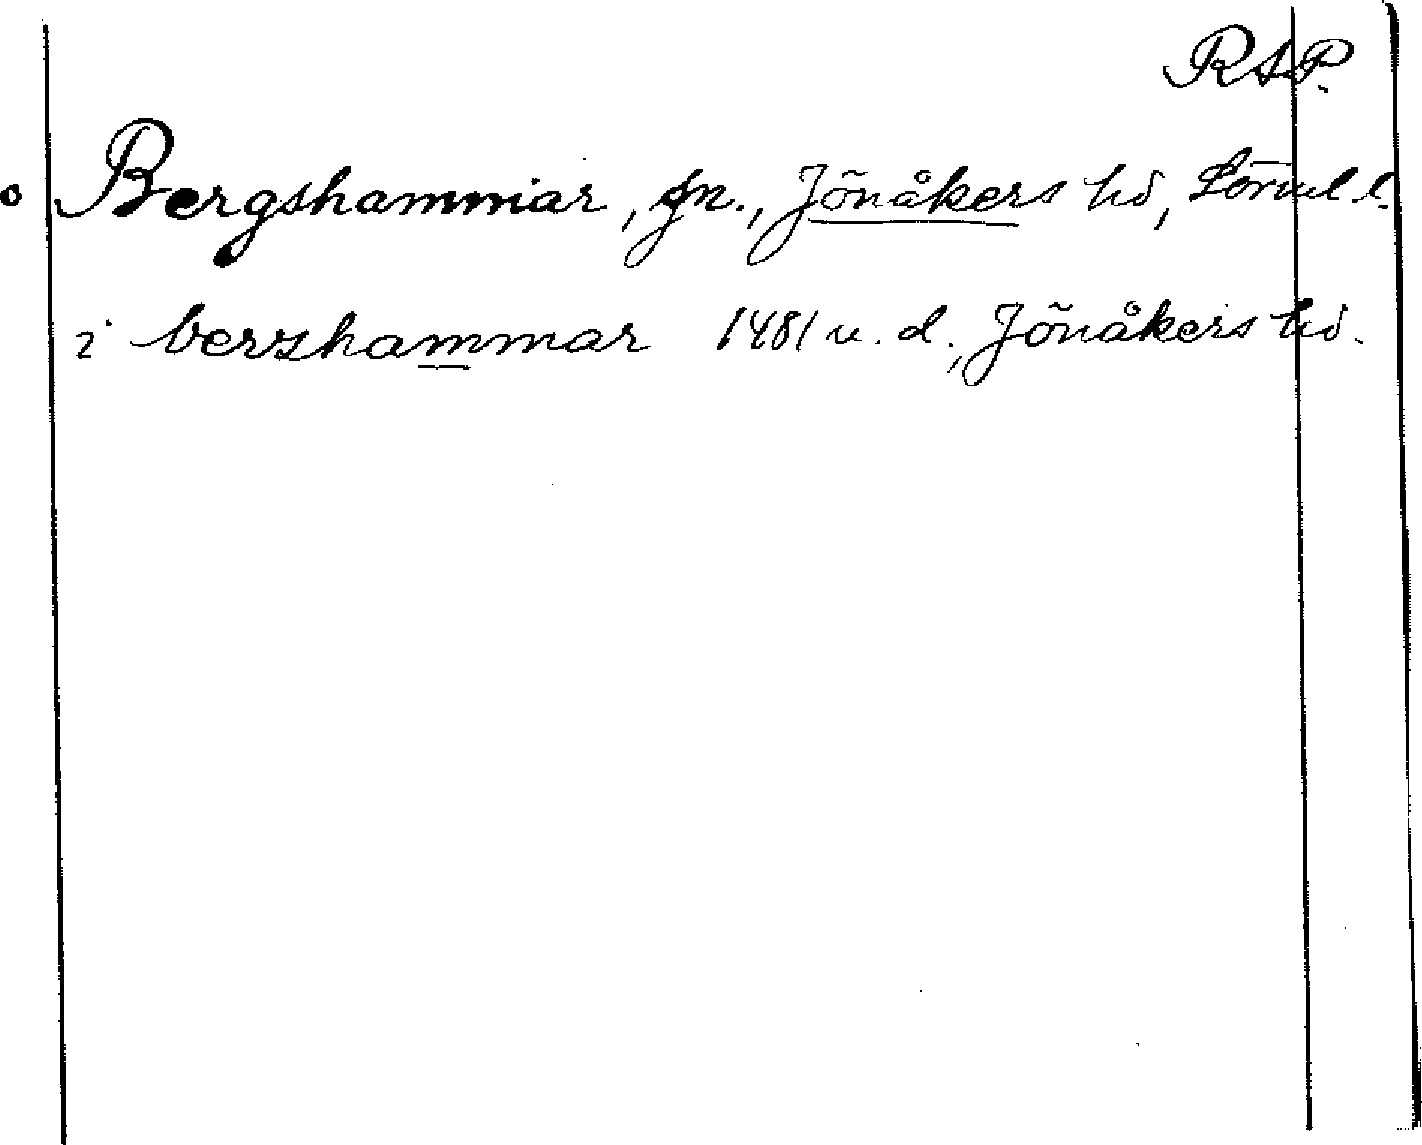 RAP.
Bergshammar, sn., Jönåkers hd, Sörml l.
i berxhammar 1481 u. d., Jönåkers hd.